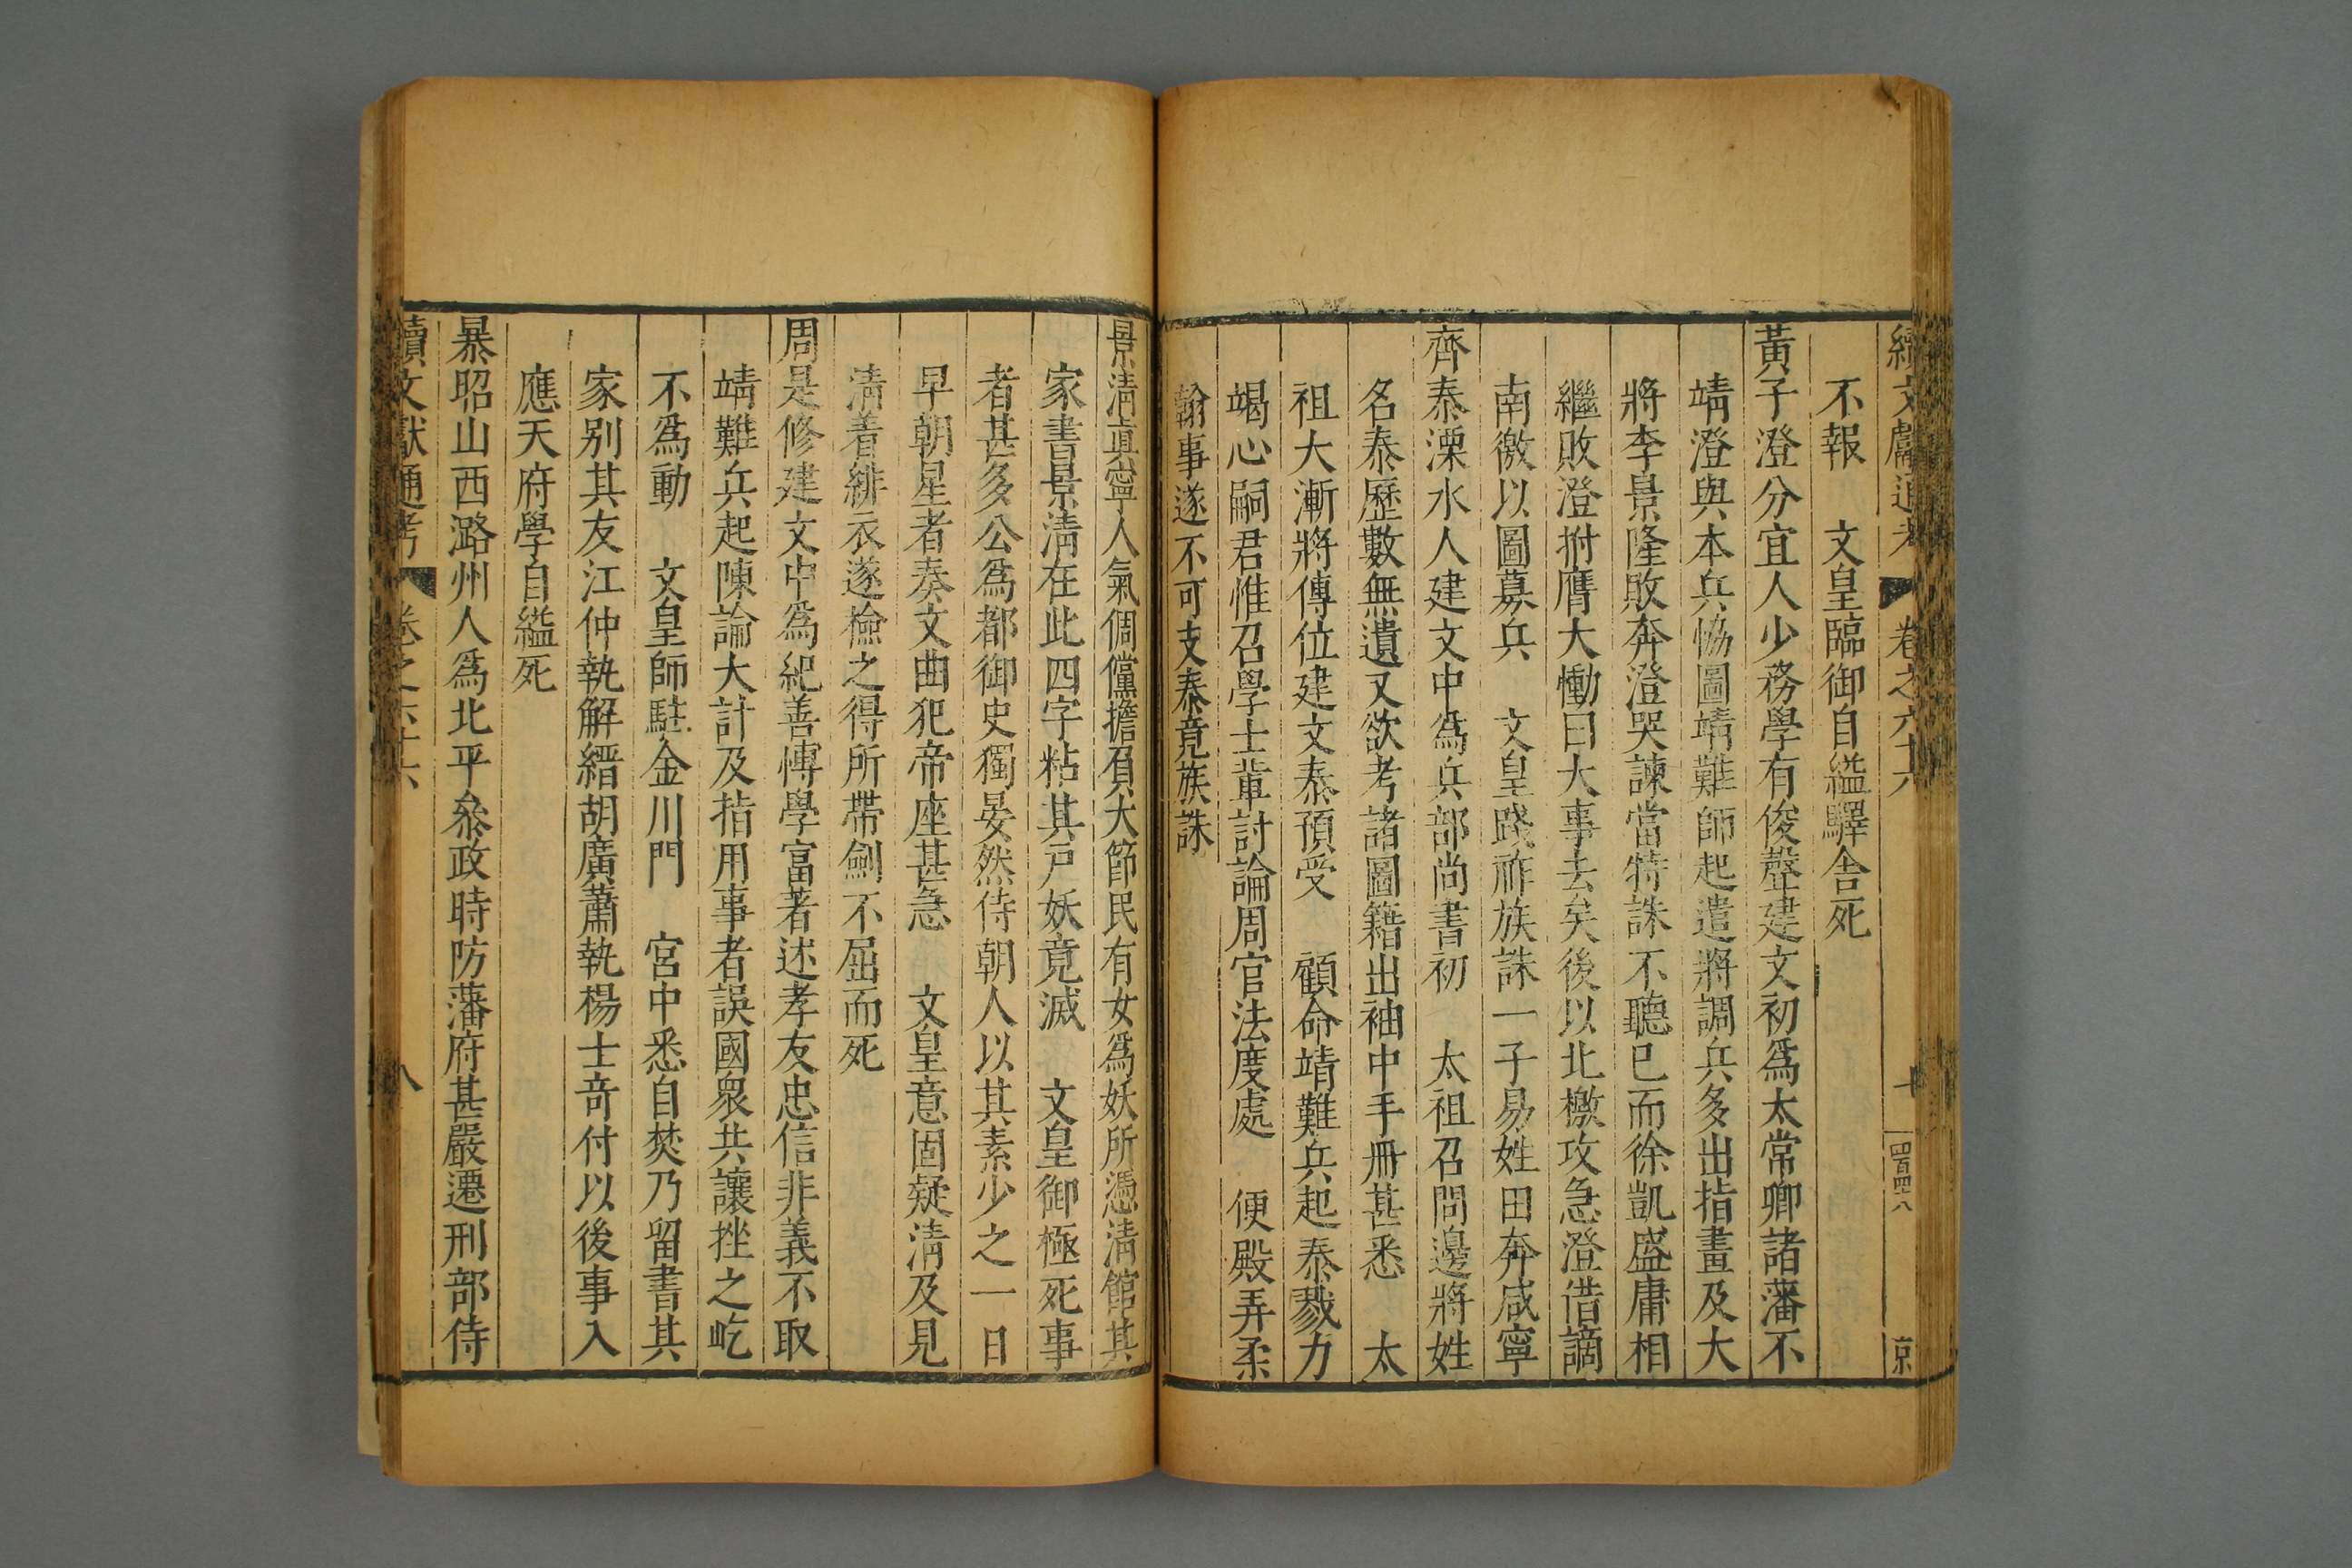 續文獻通考 卷之六十六 七 四百四十八 京
不報 文皇臨御自縊驛舍死
黃子澄分宜人少務學有俊聲建文初爲太常卿諸藩不
靖澄與本兵恊圖靖難師起遣將調兵多出指畫及大
將李景隆敗奔澄哭諫當特誅不聽已而徐凱盛庸相
繼敗澄拊膺大慟曰大事去矣後以北檄攻急澄借謫
南徼以圖募兵 文皇踐祚族誅一子易姓田奔咸寧
齊泰溧水人建文中爲兵部尚書初 太祖召問邊將姓
名泰歷數無遺又欲考諸圖籍出袖中手冊甚悉 太
祖大漸將傳位建文泰預受 顧命靖難兵起泰戮力
竭心嗣君惟召學士輩討論周官法度處 便殿弄柔
翰事遂不可支泰竟族誅
景淸眞寧人氣倜儻擔負大節民有女爲妖所憑淸館其
家書景淸在此四字粘其戸妖竟滅 文皇御極死事
者甚多公爲都御史獨晏然侍朝人以其素少之一日
早朝星者奏文曲犯帝座甚急 文皇意固疑淸及見
淸着緋衣遂檢之得所帶劍不屈而死
周是修建文中爲紀善慱學富著述孝友忠信非義不取
靖難兵起陳論大計及指用事者誤國衆共讓挫之屹
不爲動 文皇師駐金川門 宮中悉自焚乃留書其
家别其友江仲執解縉胡廣蕭執楊士奇付以後事入
應天府學自縊死
暴昭山西潞州人爲北平叅政時防藩府甚嚴遷刑部侍
續文獻通考 卷之六十六 八